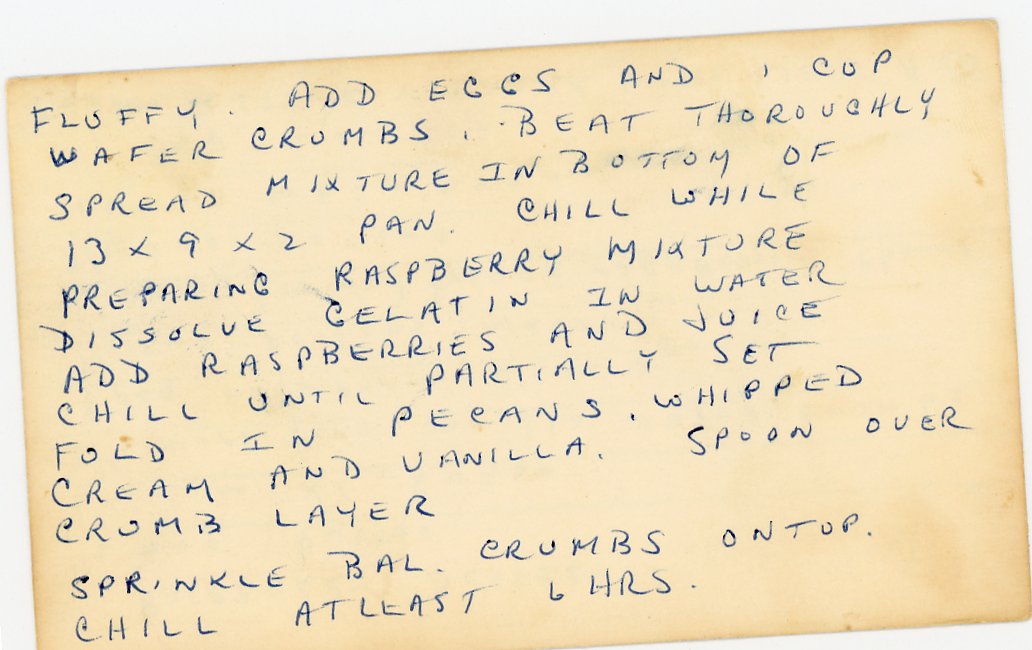 FLUFFY. ADD EGGS AND 1 CUP
WAFER CRUMBS. BEAT THOROUGHLY
SPREAD MIXTURE IN BOTTOM OF
13 x 9 x 2 PAN. CHILL WHILE
PREPARING RASPBERRY MIXTURE
DISSOLVE GELATIN IN WATER
ADD RASPBERRIES AND JUICE
CHILL UNTIL PARTIALLY SET
FOLD IN PECANS, WHIPPED
CREAM AND VANILLA. SPOON OVER
CRUMB LAYER
SPRINKLE BAL. CRUMBS ON TOP.
CHILL AT LEAST 6 HRS.